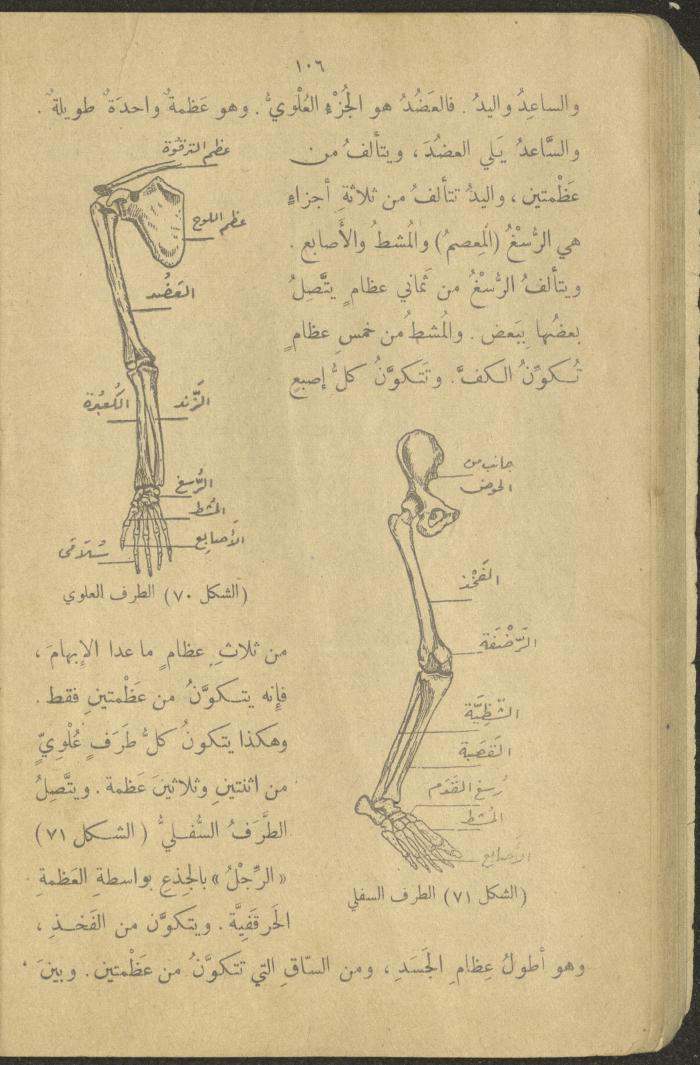 ١٠٦
والساعِدُ واليدُ . فالعَضُدُ هو الجُزْءُ العُلْويُّ . وهو عَظمةٌ واحدَةٌ طويلةٌ .
والسَّاعدُ يَلي العضُدَ ، ويتألفُ من
عَظْمتين ، واليدُ تتألفُ من ثلاثةِ أجزاءٍ
هي الرُّسْغُ (المِعصمُ) والمُشطُ والأَصابع .
ويتألفُ الرُّسْغُ من ثَماني عظامٍ يتَّصِلُ
بعضُها بِبَعض . والمُشطُ من خمسِ عظامٍ
تُكوِّنُ الكفَّ . وتَتكوَّنُ كلُّ إصبعٍ
عظم الترقوة
عظم اللوح
العَضُد
الزَّند
الكُعبُرة
الرُّسغ
المُشط
الأَصابع
سُلَامَى
(الشكل ٧٠) الطرف العلوي
جانب من
الحوض
الفَخْذ
الرَّضْفَة
الشَّظِيَّة
القَصَبة
رُسغ القَدَم
المُشط
الأَصابع
(الشكل ٧١) الطرف السفلي
من ثلاثِ عظامٍ ما عدا الإبهامَ ،
فإنه يتكوَّنُ من عَظْمتينِ فقط .
وهكذا يتكونُ كلُّ طَرَفٍ عُلْوِيٍّ
من اثنتينِ وثلاثينَ عَظمة . ويتَّصِلُ
الطَّرَفُ السُّفليُّ (الشكل ٧١)
« الرِّجْلُ » بالجِذعِ بواسطةِ العَظمةِ
الحَرقَفيَّة . ويتكوَّن من الفَخذِ ،
وهو أطولُ عِظامِ الجَسَدِ ، ومن السّاقِ التي تتكوَّنُ من عَظْمتين . وبينَ